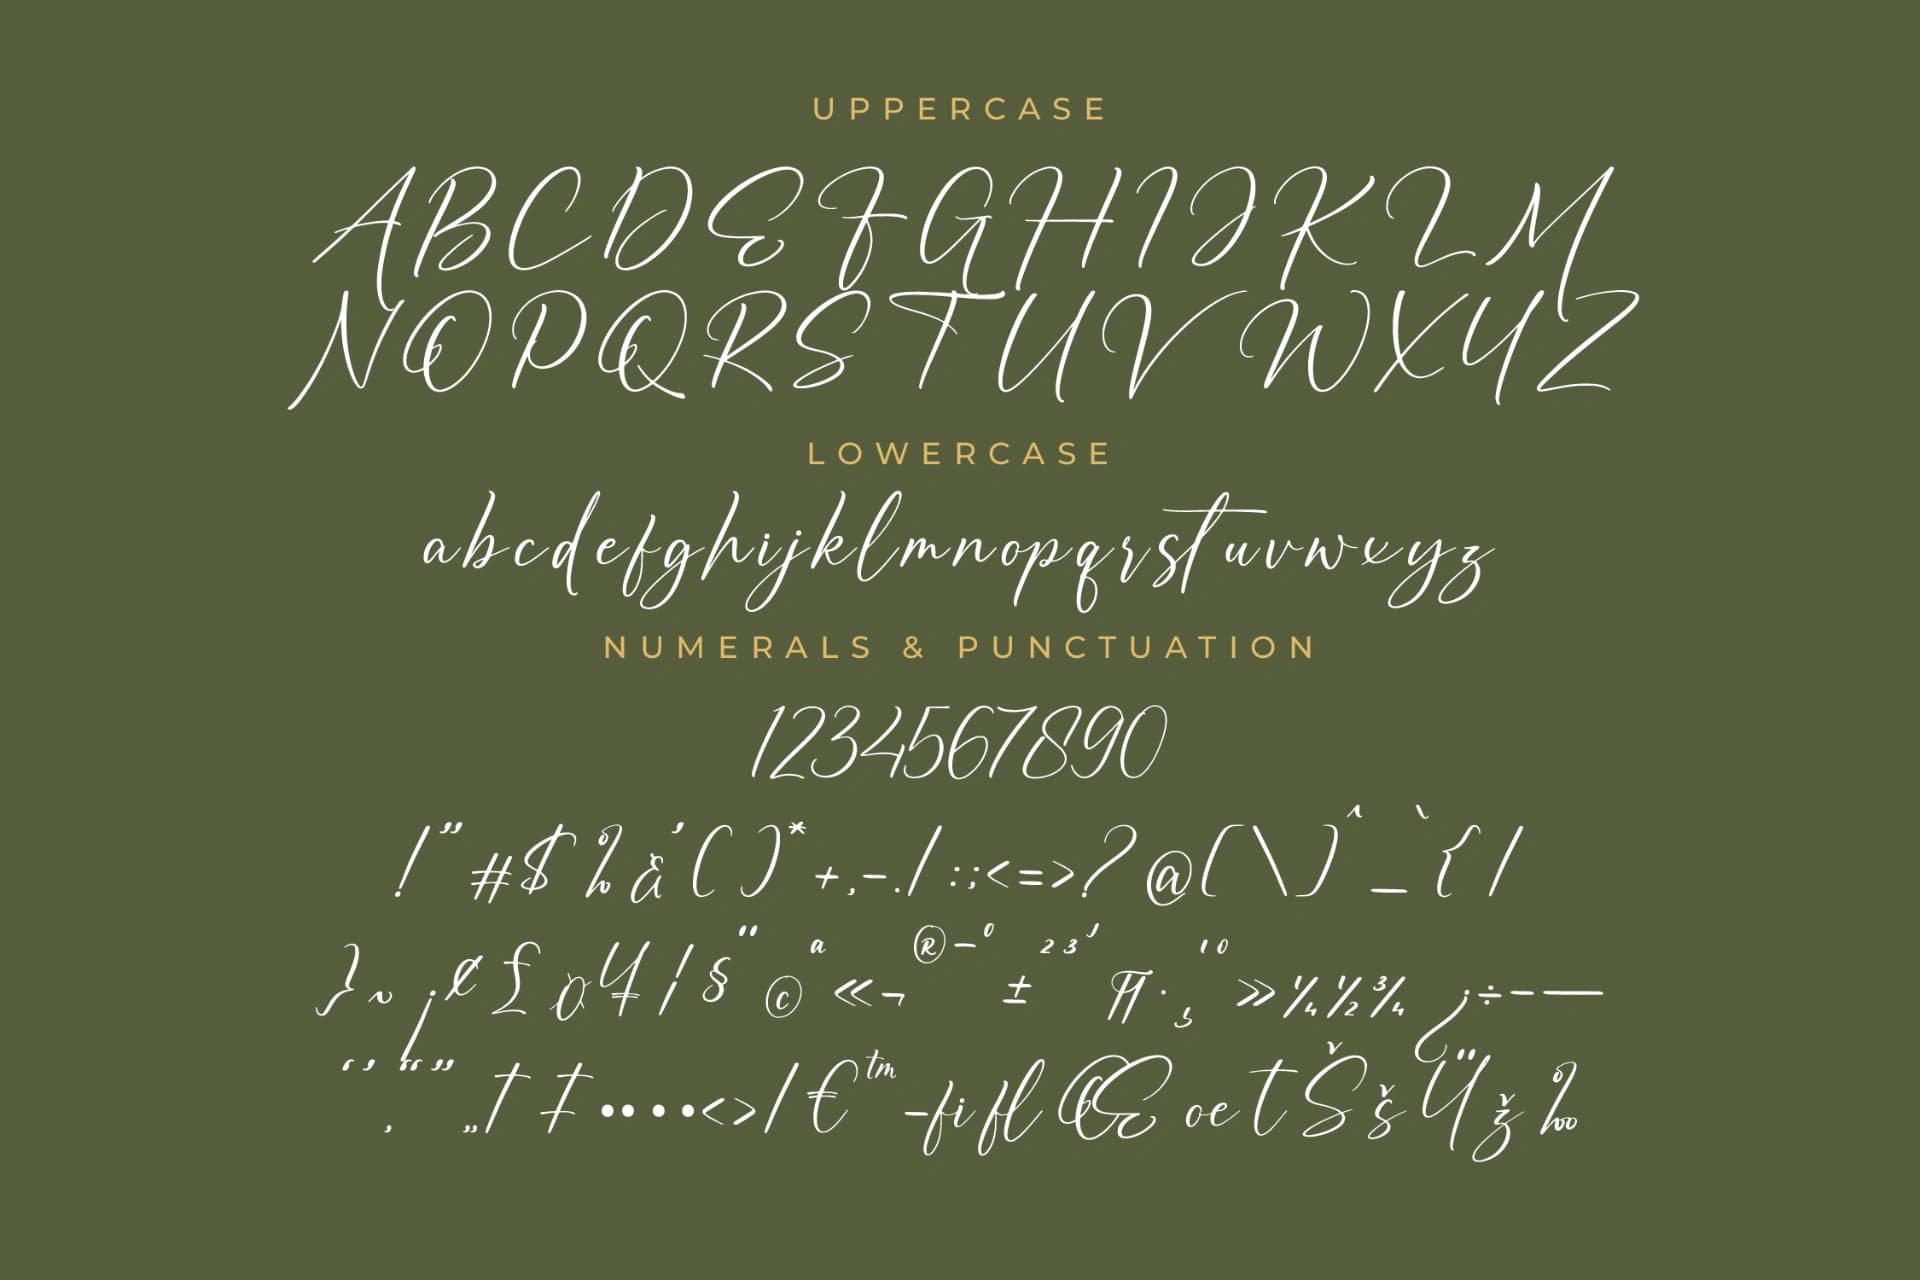 UPPERCASE
ABCDEFGHIJKLM
NOPQRSTUVWXYZ
LOWERCASE
abcdefghijklmnopqrstuvwxyz
NUMERALS & PUNCTUATION
1234567890
!"#$%&'()*+,-./:;<=>?@[\]^_`{|
}~¡¢£¤¥¦§¨©ª«¬®¯°±²³´¶·¸¹º»¼½¾¿÷–—
‘’‚“”„†‡•…‹›⁄€™−fifl Œ œ t Š š Ÿ ž ‰